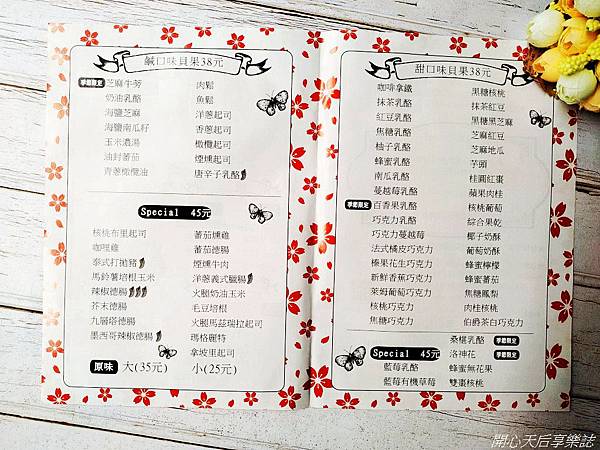 鹹口味貝果38元
季節限定 芝麻牛蒡 肉鬆
奶油乳酪 魚鬆
海鹽芝麻 洋蔥起司
海鹽南瓜籽 香蔥起司
玉米濃湯 橄欖起司
油封蕃茄 煙燻起司
青蔥橄欖油 唐辛子乳酪
Special 45元
核桃布里起司 蕃茄燻雞
咖哩雞 蕃茄德腸
泰式打拋豬 煙燻牛肉
馬鈴薯培根玉米 洋蔥義式臘腸
辣椒德腸 火腿奶油玉米
芥末德腸 毛豆培根
九層塔德腸 火腿馬茲瑞拉起司
墨西哥辣椒德腸 瑪格麗特
拿坡里起司
原味 大(35元) 小(25元)
甜口味貝果38元
咖啡拿鐵 黑糖核桃
抹茶乳酪 抹茶紅豆
紅豆乳酪 黑糖黑芝麻
焦糖乳酪 芝麻紅豆
柚子乳酪 芝麻地瓜
蜂蜜乳酪 芋頭
南瓜乳酪 桂圓紅棗
蔓越莓乳酪 蘋果肉桂
季節限定 百香果乳酪 核桃葡萄
巧克力乳酪 綜合果乾
巧克力蔓越莓 椰子奶酥
法式橘皮巧克力 葡萄奶酥
榛果花生巧克力 蜂蜜檸檬
新鮮香蕉巧克力 蜂蜜蕃茄
萊姆葡萄巧克力 焦糖鳳梨
核桃巧克力 肉桂核桃
焦糖巧克力 伯爵茶白巧克力
桑椹乳酪 季節限定
Special 45元 洛神花 季節限定
藍莓乳酪 蜂蜜無花果
藍莓有機草莓 雙棗核桃
開心天后享樂誌